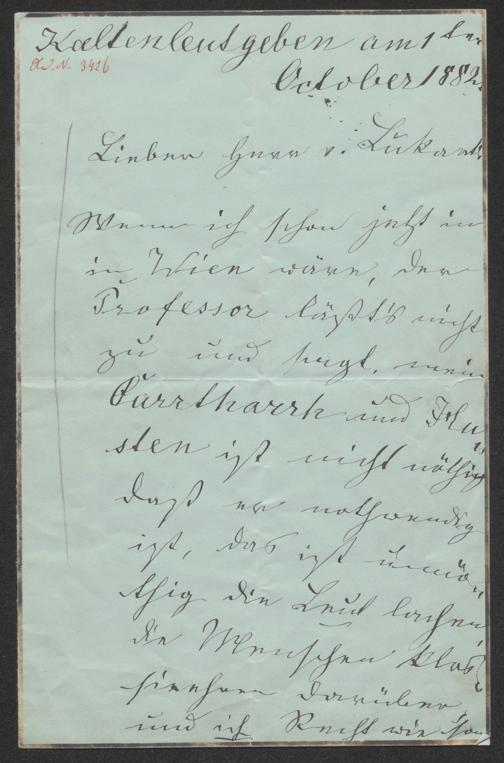 Kaltenleutgeben am 1ten
J. N. 3426
October 1882.
Lieber Herr v. Lukac
Wenn ich schon jetzt in
in Wien wäre, der
Professor läßt's nicht
zu und sagt, mein
Carrtharrh und Hu
sten ist nicht nöthig
daß er nothwendig
ist, das ist unnö
thig die Leut lachen
die Menschen
darüber
und ich Recht wie